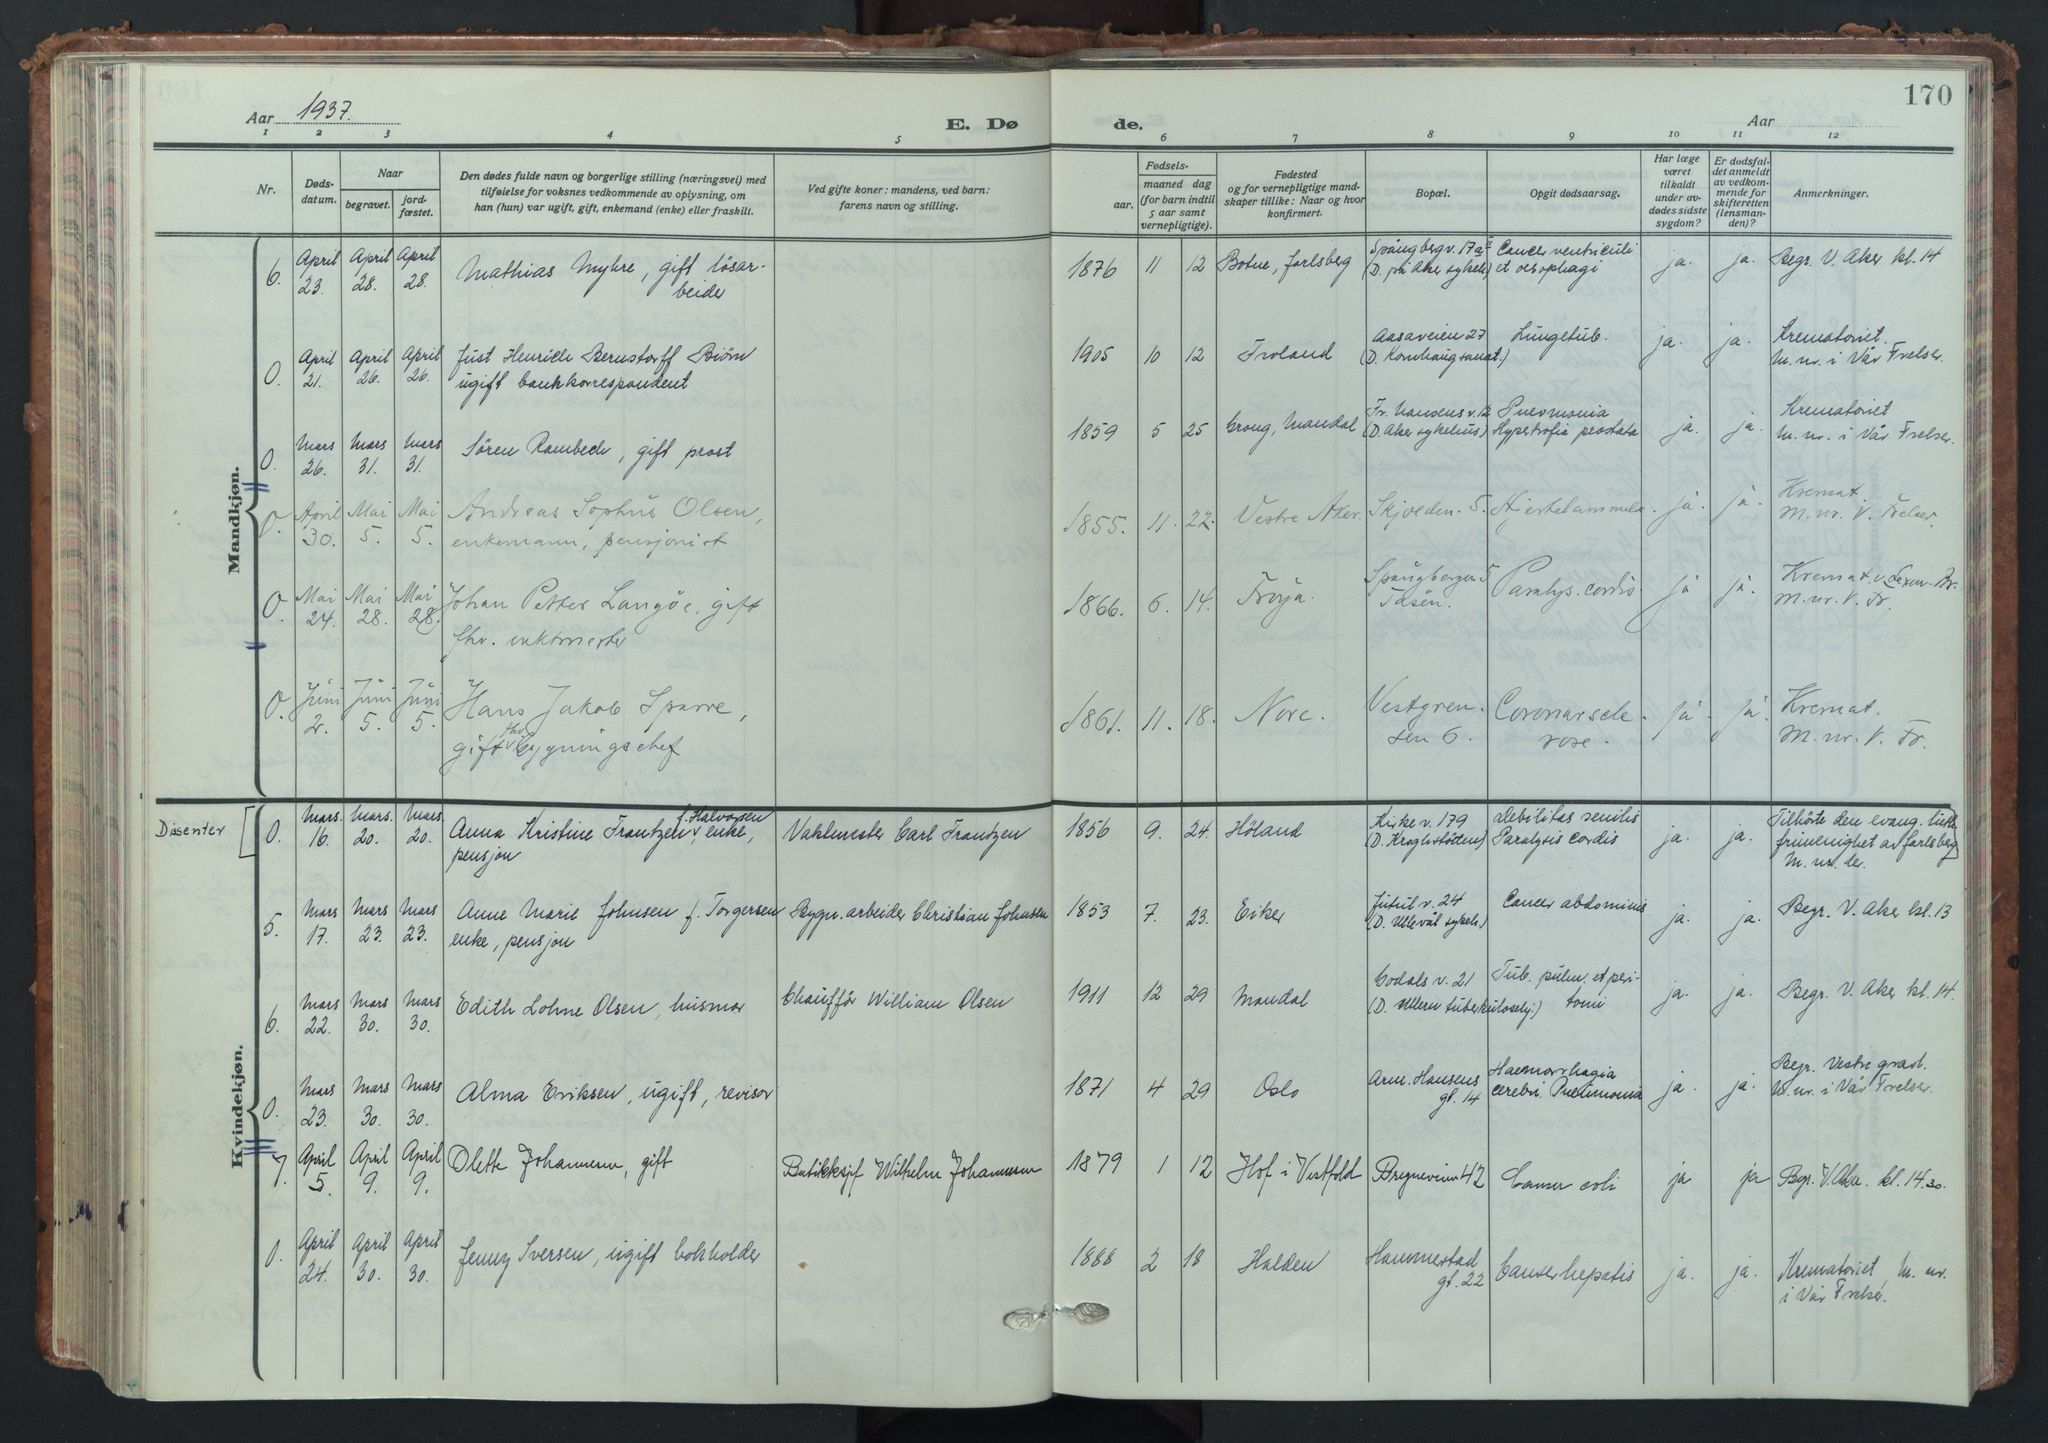 170
Aar 1937.
E. Dø
de.
Aar
1 2 3 4 5 6 7 8 9 10 11 12
Nr.
Døds-
datum.
Naar
begravet.
jord-
fæstet.
Den dødes fulde navn og borgerlige stilling (næringsvei) med
tilføielse for voksnes vedkommende av oplysning, om
han (hun) var ugift, gift, enkemand (enke) eller fraskilt.
Ved gifte koner: mandens, ved barn:
farens navn og stilling.
Fødsels-
aar.
maaned dag
(for barn indtil
5 aar samt
vernepligtige).
Fødested
og for vernepligtige mand-
skaper tillike: Naar og hvor
konfirmert.
Bopæl.
Opgit dødsaarsag.
Har læge
været
tilkaldt
under av-
dødes sidste
sygdom?
Er dødsfal-
det anmeldt
av vedkom-
mende for
skifteretten
(lensman-
den)?
Anmerkninger.
Mandkjøn.
6. April 23. April 28. April 28. Mathias Myhre, gift løsar-
beider
1876 11 12 Botne, Jarlsberg
Spångbergv. 17a
(D. på Aker sykeh.)
Cancer ventriculi
et oesophagi
ja. ja. Begr. V. Aker kl. 14
0. April 21. April 26. April 26. Just Henrich Bernstorff Biørn
ugift bankkorrespondent
1905 10 12 Froland
Aasaveien 27
(D. Kornhaugsanat.)
Lungetub.
ja. ja. Krematoriet.
M. nr. i Vår Frelser.
0. Mars 26. Mars 31. Mars 31. Søren Rambech, gift prost
1859 5 25 Mandal
Fr. Nansens v. 12
(D. Aker sykehus)
Pneumonia
Hypertrofia prostata
ja. ja. Krematoriet
M. nr. i Vår Frelser.
0. April 30. Mai 5. Mai 5. Andreas Sophus Olsen,
enkemann, pensjonist
1855. 11. 22. Vestre Aker. Skjolden. 5. Hjertelammelse.
ja. ja. Kremat.
M. nr. V. Frelser.
0. Mai 24. Mai 28. Mai 28. Johan Petter Langöe, gift
fhv.
1866. 6. 14. Tröja.
Spångbergv. 5
Tåsen.
Paralys. cordis.
ja ja.
M. nr. V. Fr.
0. Juni 2. Juni 5. Juni 5. Hans Jakob Sparre,
gift fhv. bygningschef
1861. 11. 18. Nore.
Vestgren-
sen 6.
Coronarscle-
rose.
ja. ja. Kremat.
M. nr. V. Fr.
Dissenter
Kvindekjøn.
0. Mars 16. Mars 20. Mars 20. Anna Kristine Frantzen f. Halvorsen, enke,
pensjon
Vaktmester Carl Frantzen
1856 9. 24. Höland
Kirkev. 179
(D. Kroghstötten)
Debilitas senilis
Paralysis cordis
ja. ja. Tilhörte den evang. luth.
frimenighet av Jarlsberg
M. nr. der.
5. Mars 17. Mars 23. Mars 23. Anne Marie Johnsen f. Torgersen
enke, pensjon
Bygn. arbeider Christian Johnsen
1853 7. 23. Eiker
Jutul v. 24
(D. Ullevål sykeh.)
Cancer abdominis
ja. ja. Begr. V. Aker kl. 13
6. Mars 22. Mars 30. Mars 30. Edith Lohne Olsen, husmor
Chaufför William Olsen
1911 12 29 Mandal
v. 21
(D. Ullern tuberkulosehj.)
Tub. pulm. et peri-
tonii
ja. ja. Begr. V. Aker kl. 14.
0. Mars 23. Mars 30. Mars 30. Alma Eriksen, ugift, revisor
1871 4 29 Oslo
Arm. Hansens
gt. 14
Haemorrhagia
cerebri. Pneumonia
ja. ja. Begr. Vestre gravl.
M. nr. i Vår Frelser.
7. April 5. April 9. April 9. Olette Johannesen, gift
Butikksjef Wilhelm Johannesen
1879 1 12 Hof i Vestfold Bregneveien 42 Cancer coli
ja ja Begr. V. Aker. kl. 14.30.
0. April 24. April 30. April 30. Jenny Iversen, ugift bokholder
1888 2 18 Halden
Hammerstad
gt. 22
Cancer hepatis
ja. ja. Krematoriet, M. nr.
i Vår Frelser.